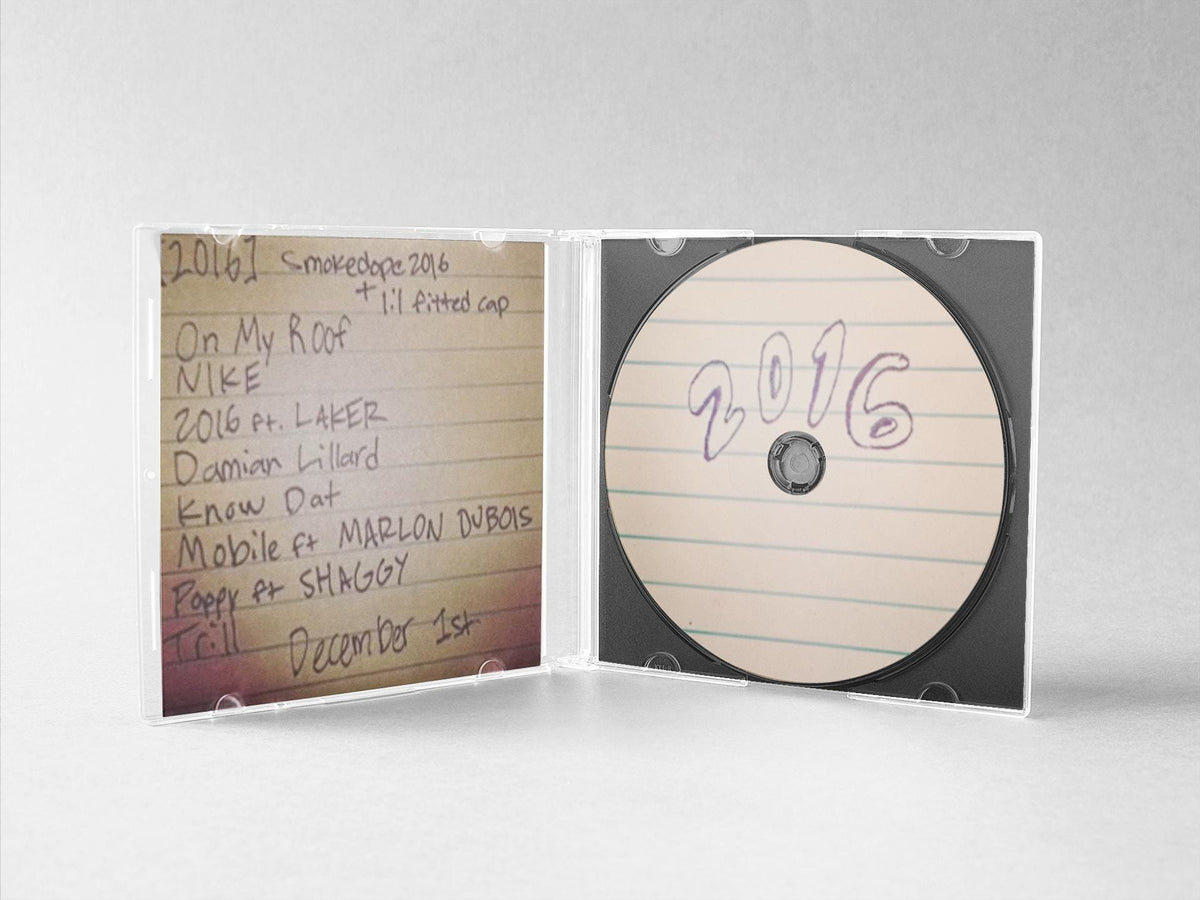 [2016] Smokedope2016
+ lil fitted cap
On My Roof
NIKE
2016 ft. LAKER
Damian Lillard
Know Dat
Mobile ft MARLON DUBOIS
Poppy ft SHAGGY
Trill December 1st
2016